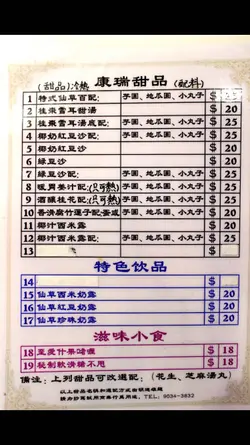 (甜品)冷熱 康瑞甜品 (配料)
1 特式仙草百配: 芋圓、地瓜圓、小丸子 $ 25
2 桂花雪耳甜湯 $ 20
3 桂花雪耳湯底配: 芋圓、地瓜圓、小丸子 $ 25
4 椰奶紅豆沙配: 芋圓、地瓜圓、小丸子 $ 25
5 椰奶紅豆沙 $ 20
6 綠豆沙 $ 20
7 綠豆沙配: 芋圓、地瓜圓、小丸子 $ 25
8 暖胃姜汁配:(只可熱) 芋圓、地瓜圓、小丸子 $ 25
9 酒釀桂花配:(只可熱) 芋圓、地瓜圓、小丸子 $ 25
10 香滑腐竹蓮子配:蛋或 芋圓、地瓜圓、小丸子 $ 25
11 椰汁西米露 $ 20
12 椰汁西米露配: 芋圓、地瓜圓、小丸子 $ 25
13 $
特色饮品
14 $
15 仙草西米奶露 $ 20
16 仙草紅豆奶露 $ 20
17 仙草珍珠奶露 $ 20
滋味小食
18 至愛什果 $ 18
19 秘制軟滑糖不甩 $ 18
備注：上列甜品可改選配：(花生、芝麻湯丸)
TEL: 9034-3832